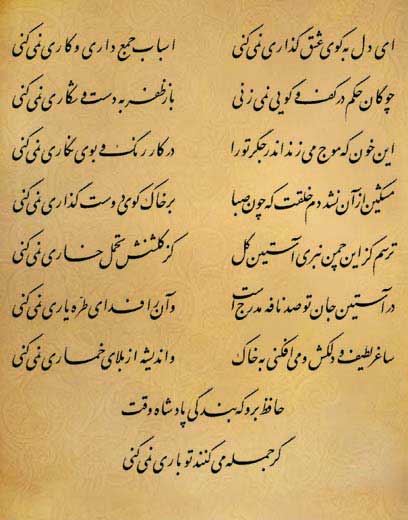 ای دل به کوی عشق گذاری نمی‌کنی اسباب جمع داری و کاری نمی‌کنی
چوگان حکم در کف و گویی نمی‌زنی باز ظفر به دست و شکاری نمی‌کنی
این خون که موج می‌زند اندر جگر تو را در کار رنگ و بوی نگاری نمی‌کنی
مشکین از آن نشد دم خلقت که چون صبا بر خاک کوی دوست گذاری نمی‌کنی
ترسم کز این چمن نبری آستین گل کز گلشنش تحمل خاری نمی‌کنی
در آستین جان تو صد نافه مدرج است وآن را فدای طرّه یاری نمی‌کنی
ساغر لطیف و دلکش و می افکنی به خاک و اندیشه از بلای خماری نمی‌کنی
حافظ برو که بندگی پادشاه وقت
گر جمله می‌کنند تو باری نمی‌کنی